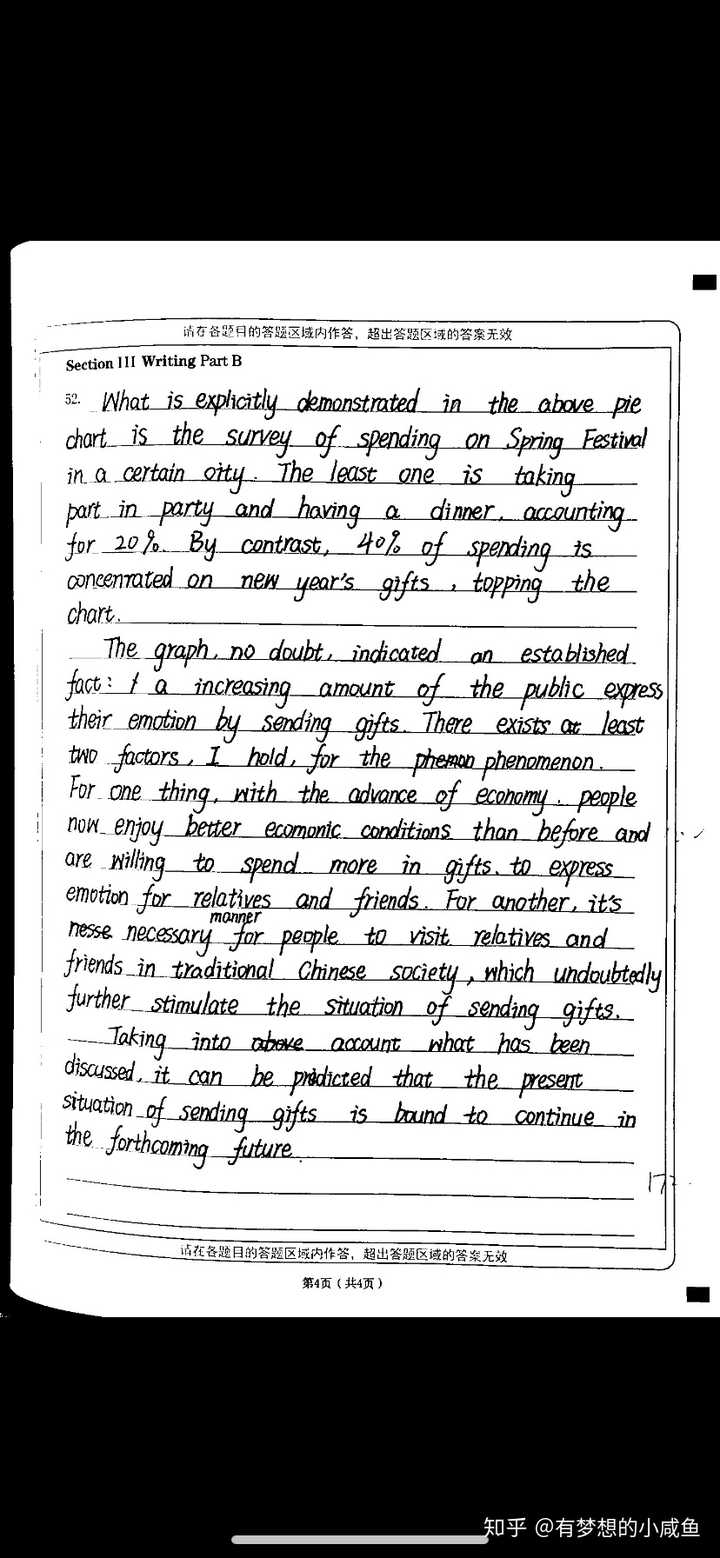 请在各题目的答题区域内作答，超出答题区域的答案无效
Section III Writing Part B
52. What is explicitly demonstrated in the above pie
chart is the survey of spending on Spring Festival
in a certain city. The least one is taking
part in party and having a dinner, accounting
for 20%. By contrast, 40% of spending is
concenrated on new year's gifts, topping the
chart.
The graph, no doubt, indicated an established
fact: a increasing amount of the public express
their emotion by sending gifts. There exists at least
two factors, I hold, for the phenomenon.
For one thing, with the advance of economy, people
now enjoy better ecomonic conditions than before and
are willing to spend more in gifts, to express
emotion for relatives and friends. For another, it's
manner
nesse necessary for people to visit relatives and
friends in traditional Chinese society, which undoubtedly
further stimulate the situation of sending gifts.
Taking into above account what has been
discussed, it can be predicted that the present
situation of sending gifts is bound to continue in
the forthcoming future.
17
请在各题目的答题区域内作答，超出答题区域的答案无效
第4页（共4页）
知乎 @有梦想的小咸鱼